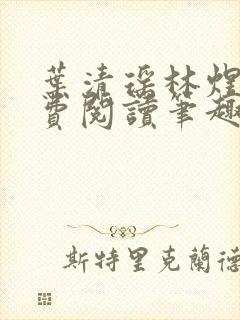 葉清瑤林煌
費閱讀筆趣
斯特里克蘭德